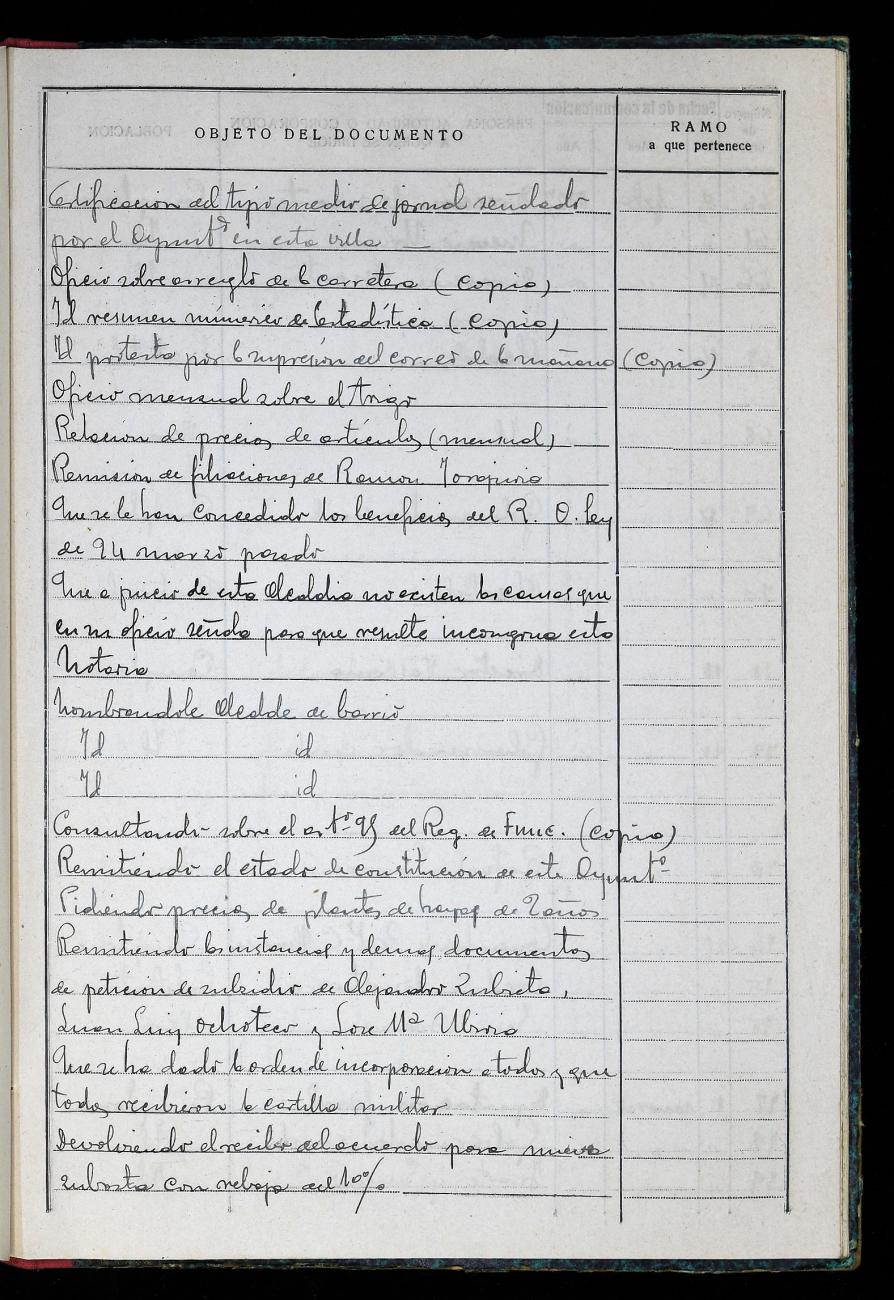 OBJETO DEL DOCUMENTO
RAMO
a que pertenece
Certificacion del tipo medio de jornal señalado
por el Ayuntº en esta villa
Oficio sobre arreglo de la carretera (Copia)
Id resumen númerico de Estadística (Copia)
Id protesta por la supresión del correo de la mañana (Copia)
Oficio mensual sobre el trigo
Relacion de precios de artículos (mensual)
Remision de filiaciones de Ramon
Que se le han concedido los beneficios del R. D. ley
de 24 marzo pasado
Que a juicio de esta Alcaldia no existen las causas que
en su oficio señala para que resulte incongrua esta
Notaria
Nombrandole Alcalde de barrio
Id id
Id id
Consultando sobre el artº 95 del Reg. de Func. (Copia)
Remitiendo el estado de constitución de este Ayuntº
Pidiendo precios de plantas de hayas de 2 años
Remitiendo las instancias y demas documentos
de peticion de subsidio de Alejandro Zubieta,
Juan Luis Ochoteco y Jose Mª Ubiria
Que se ha dado la orden de incorporacion a todos y que
todos recibieron la cartilla militar
Devolviendo el recibo del acuerdo para nueva
subasta con rebaja del 10%